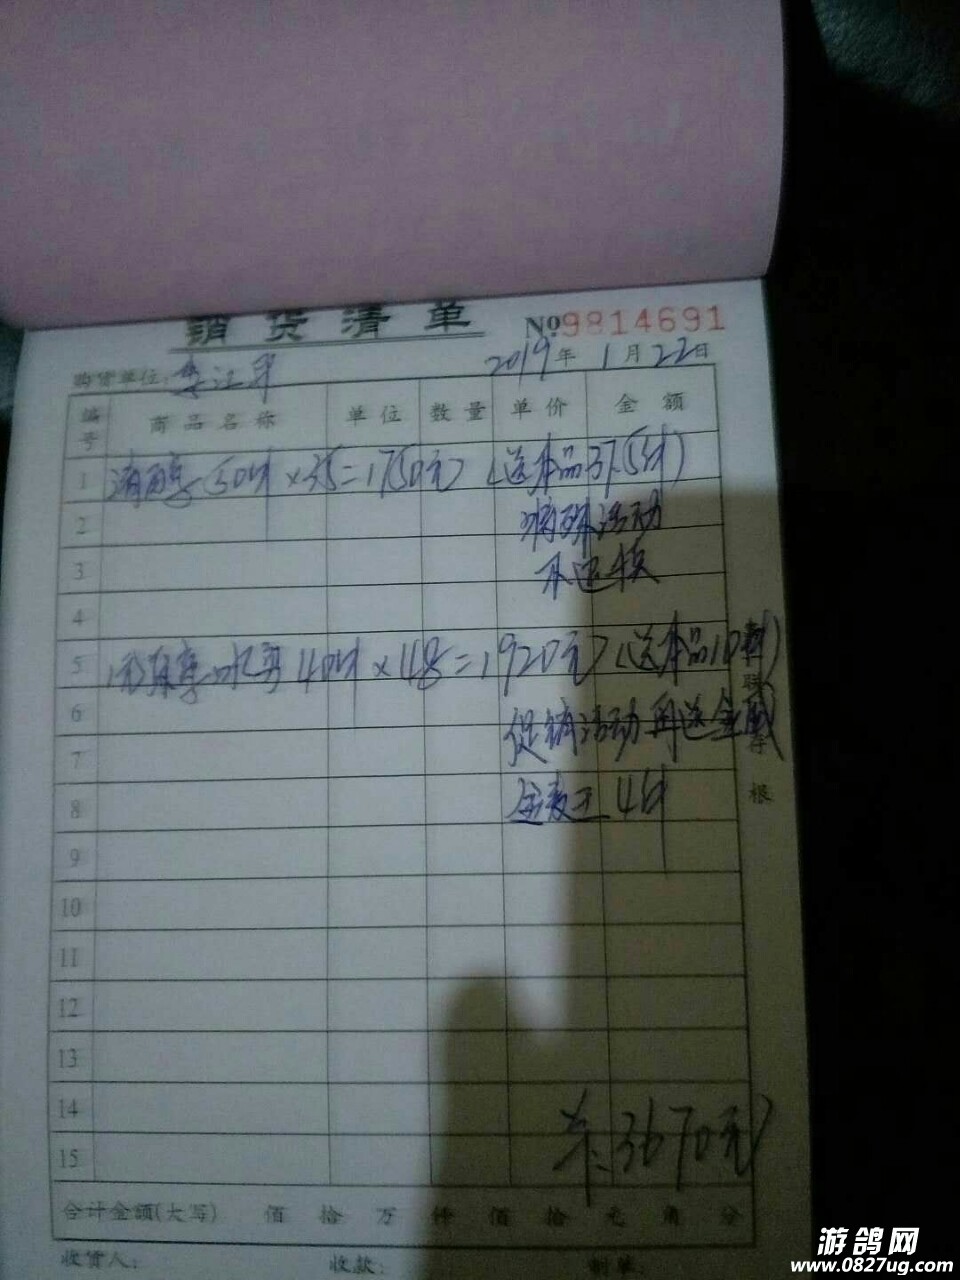 销货清单 №9814691
购货单位: 2019年1月22日
编号 商品名称 单位 数量 单价 金额
1 清醇50件×35=1750元(送本品37.5件)
2 活动
3
4
5 冰实40件×48=1920元(送本品10件)
6 促销活动再送金威
7
8 金麦王4件
9
10
11
12
13
14
15 3670元
联存根
合计金额(大写) 佰 拾 万 仟 佰 拾 元 角 分
收货人: 收款: 制单:
游鸽网
www.0827ug.com